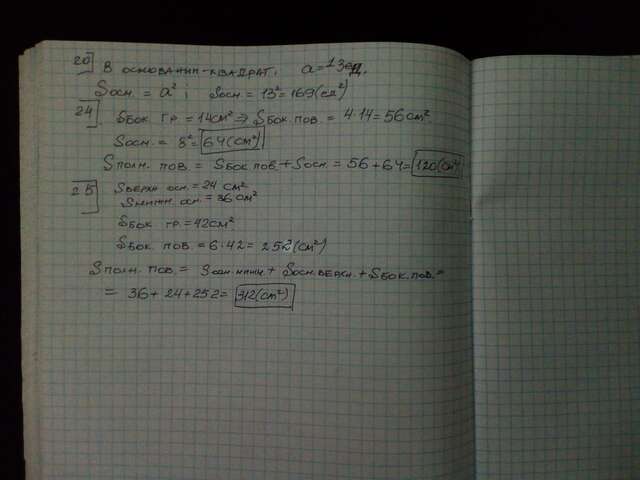 20] В основании-квадрат; a=13ед.
Sосн. = a²; Sосн. = 13²=169(ед²)
24] Sбок. гр. =14см²⇒ Sбок.пов. = 4·14=56см².
Sосн. = 8²= 64(см²)
Sполн. пов. = Sбок.пов.+Sосн. = 56+64= 120(см²)
25] Sверхн. осн.=24 см²
Sнижн. осн. = 36 см²
Sбок. гр.=42см²
Sбок. пов. =6·42= 252(см²)
Sполн. пов.= Sосн.нижн. + Sосн.верхн.+Sбок.пов.=
= 36+24+252= 312(см²)